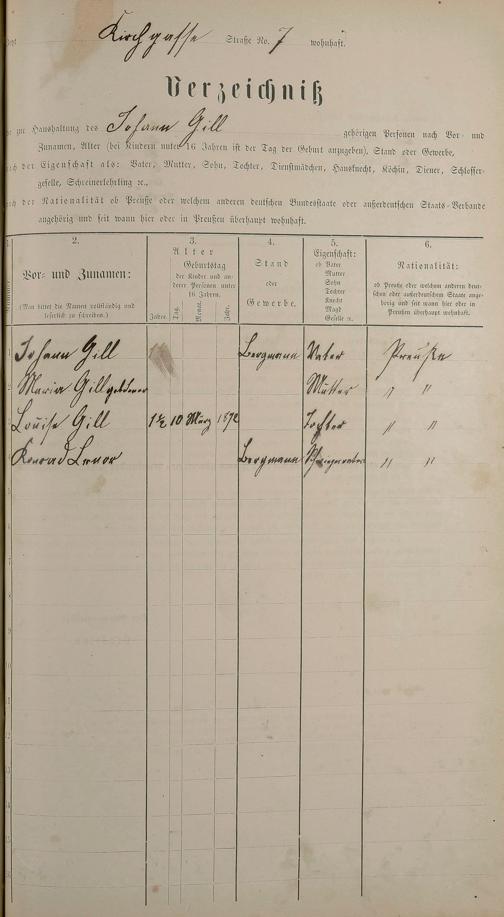 Kirchgasse Straße No. 7 wohnhaft.
Verzeichniß
zur Haushaltung des Johann Gill gehörigen Personen nach Vor- und
Zunamen, Alter (bei Kindern unter 16 Jahren ist der Tag der Geburt anzugeben), Stand oder Gewerbe,
der Eigenschaft als: Vater, Mutter, Sohn, Tochter, Dienstmädchen, Hausknecht, Köchin, Diener, Schlosser-
geselle, Schreinerlehrling ꝛc.,
der Nationalität ob Preuße oder welchem anderen deutschen Bundesstaate oder außerdeutschen Staats-Verbande
angehörig und seit wann hier oder in Preußen überhaupt wohnhaft.
2. 3. 4. 5. 6.
Vor- und Zunamen:
(Man bittet die Namen vollständig und
leserlich zu schreiben.)
Alter
Geburtstag
der Kinder und an-
derer Personen unter
16 Jahren.
Jahre. Tag. Monat. Jahr.
Stand
oder
Gewerbe.
Eigenschaft:
ob Vater
Mutter
Sohn
Tochter
Knecht
Magd
Geselle ꝛc.
Nationalität:
ob Preuße oder welchem anderen deut-
schen oder außerdeutschen Staate ange-
hörig und seit wann hier oder in
Preußen überhaupt wohnhaft.
Johann Gill Bergmann Vater Preuße
Maria Gill Mutter " "
Louise Gill 1½ 10 März 1872 Tochter " "
Konrad Lenor Bergmann Schwiegervater " "